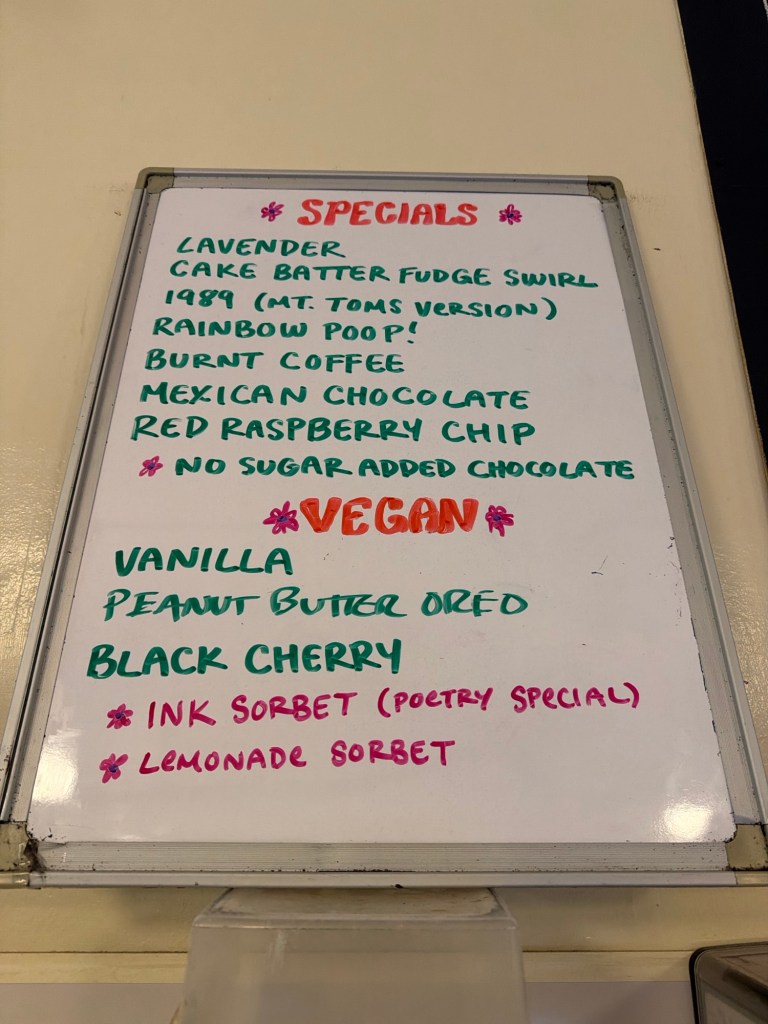 SPECIALS
LAVENDER
CAKE BATTER FUDGE SWIRL
1989 (MT. TOMS VERSION)
RAINBOW POOP!
BURNT COFFEE
MEXICAN CHOCOLATE
RED RASPBERRY CHIP
NO SUGAR ADDED CHOCOLATE
VEGAN
VANILLA
PEANUT BUTTER OREO
BLACK CHERRY
INK SORBET (POETRY SPECIAL)
LEMONADE SORBET